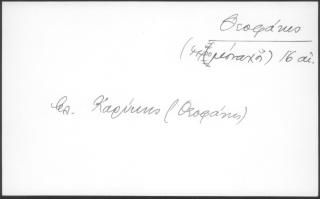 Θεοφάνης
(ιερομόναχος) 16 αι.
βλ. Καρύκης (Θεοφάνης)